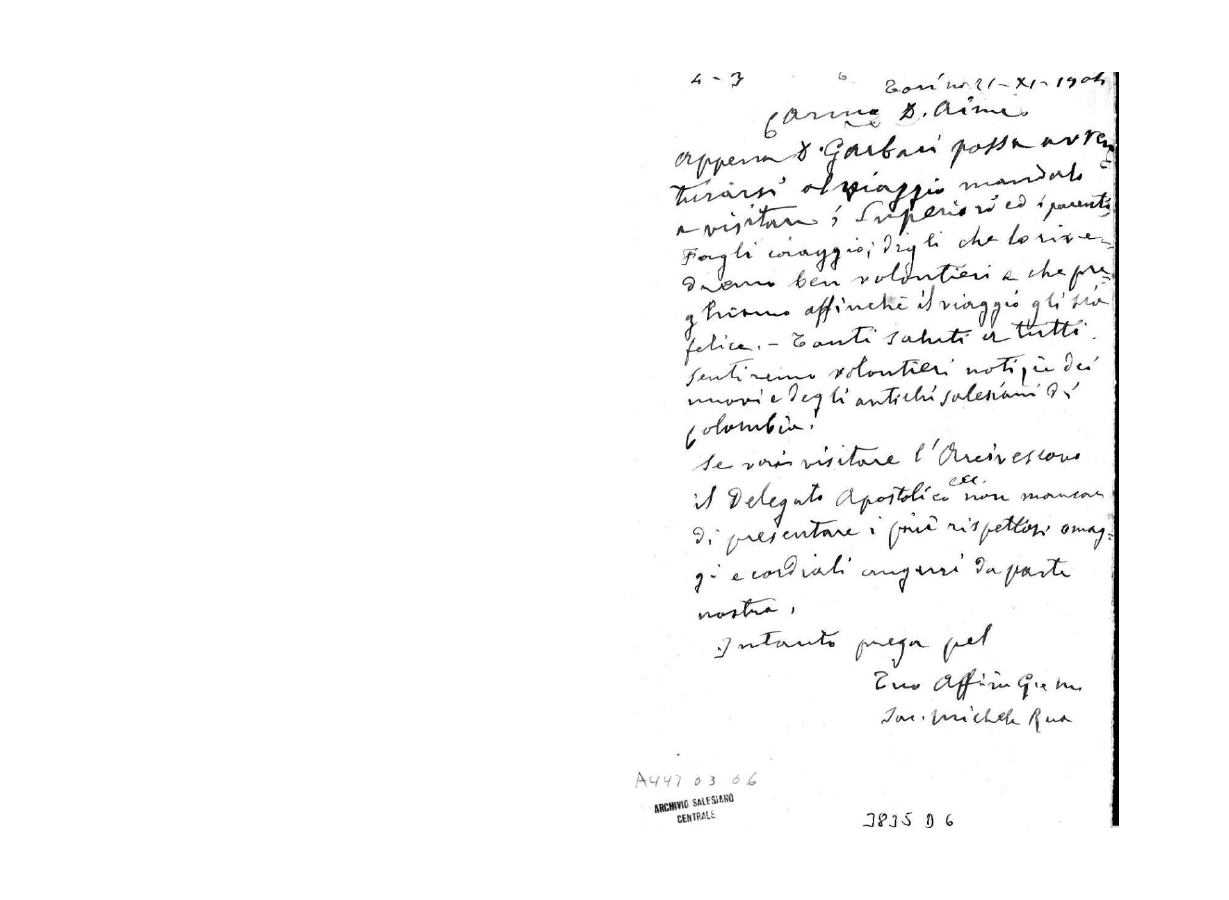 4 - 3 6 Torino 21-XI-1904
Carmo D. Aime
Appena D. Garbari possa avven=
turarsi al viaggio mandalo
a visitare i Superiori ed i parenti
Fagli coraggio; digli che lo rive=
dremo ben volontieri e che pre=
ghiamo affinchè il viaggio gli sia
felice. - Tanti saluti a tutti.
Sentiremo volontieri notizie dei
nuovi e degli antichi salesiani di
Colombia.
Se vai visitare l'Arcivescovo
il Delegato Apostolico ecc. non mancar
di presentare i più rispettosi omag=
gi e cordiali auguri da parte
nostra,
Intanto prega pel
Tuo Affmo in G. e M.
Sac. Michele Rua
A447 03 06
ARCHIVIO SALESIANO
CENTRALE
3835 D 6